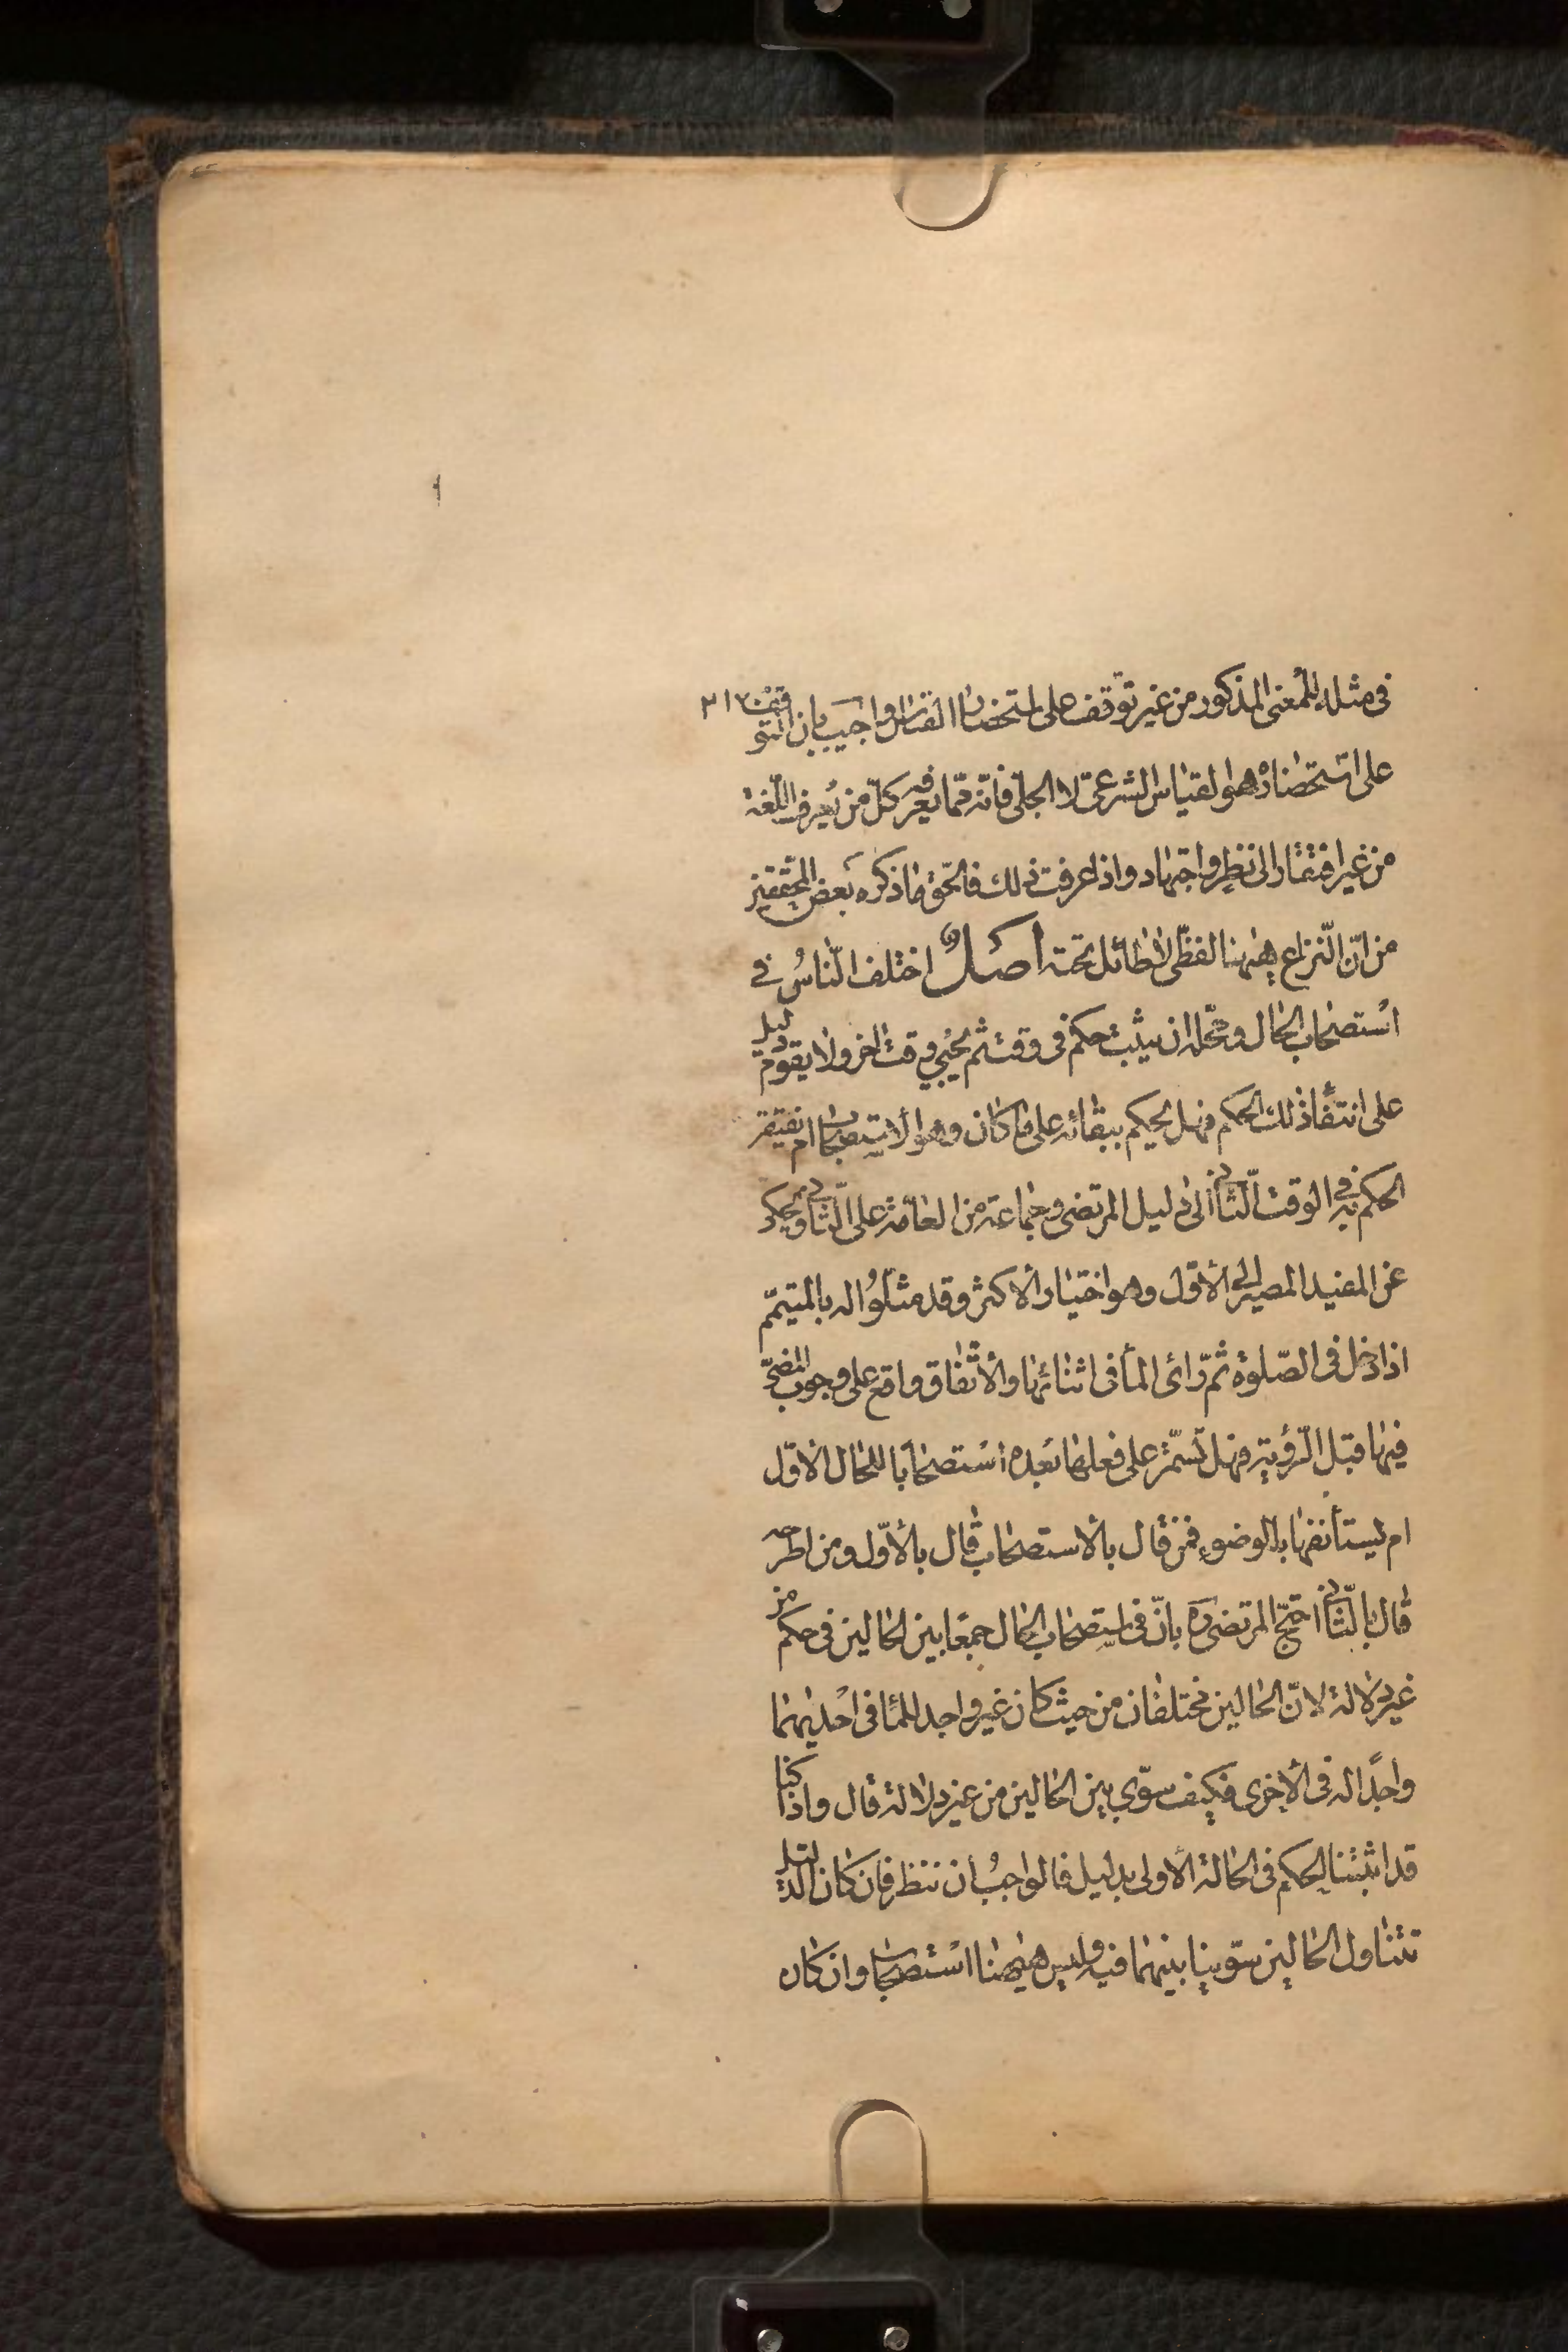 في مثله للمعنى المذكور من غير توقف على استحضار القياس واجيب بان التوقف ٢١٧
على استحضاره هو القياس الشرعى لا الجلى فانه مما يعرفه كل من يعرف اللغة
من غير افتقار الى نظر واجتهاد واذا عرفت ذلك فالحق ما ذكره بعض المحققين
من ان النزاع ههنا لفظى لا طائل تحته اصل اختلف الناس في
استصحاب الحال ومحله ان يثبت حكم فى وقت ثم يجيئ وقت اخر ولا يقوم دليل
على انتفاء ذلك الحكم فهل يحكم ببقائه على ما كان وهو الاستصحاب ام يفتقر
الحكم به فى الوقت الثانى الى دليل المرتضى وجماعة من العامة على الثانى ويحكى
عن المفيد المصير الى الاول وهو اختيار الاكثر وقد مثلوا له بالمتيمم
اذا دخل فى الصلوة ثم رائ الماء فى اثنائها والاتفاق واقع على وجوب المضى
فيها قبل الرؤية فهل تستمر على فعلها بعده استصحابا للحال الاول
ام يستأنفها بالوضوء فمن قال بالاستصحاب قال بالاول ومن اطرحه
قال بالثانى احتج المرتضى ره بان فى استصحاب الحال جمعا بين الحالين فى حكم من
غير دلالة لان الحالين مختلفان من حيث كان غير واجد للماء فى احديهما
واجدا له فى الاخرى فكيف سوى بين الحالين من غير دلالة قال واذا كنا
قد اثبتنا الحكم فى الحالة الاولى بدليل فالواجب ان ننظر فان كان الدليل
تتناول الحالين سوينا بينهما فيه وليس ههنا استصحاب وان كان